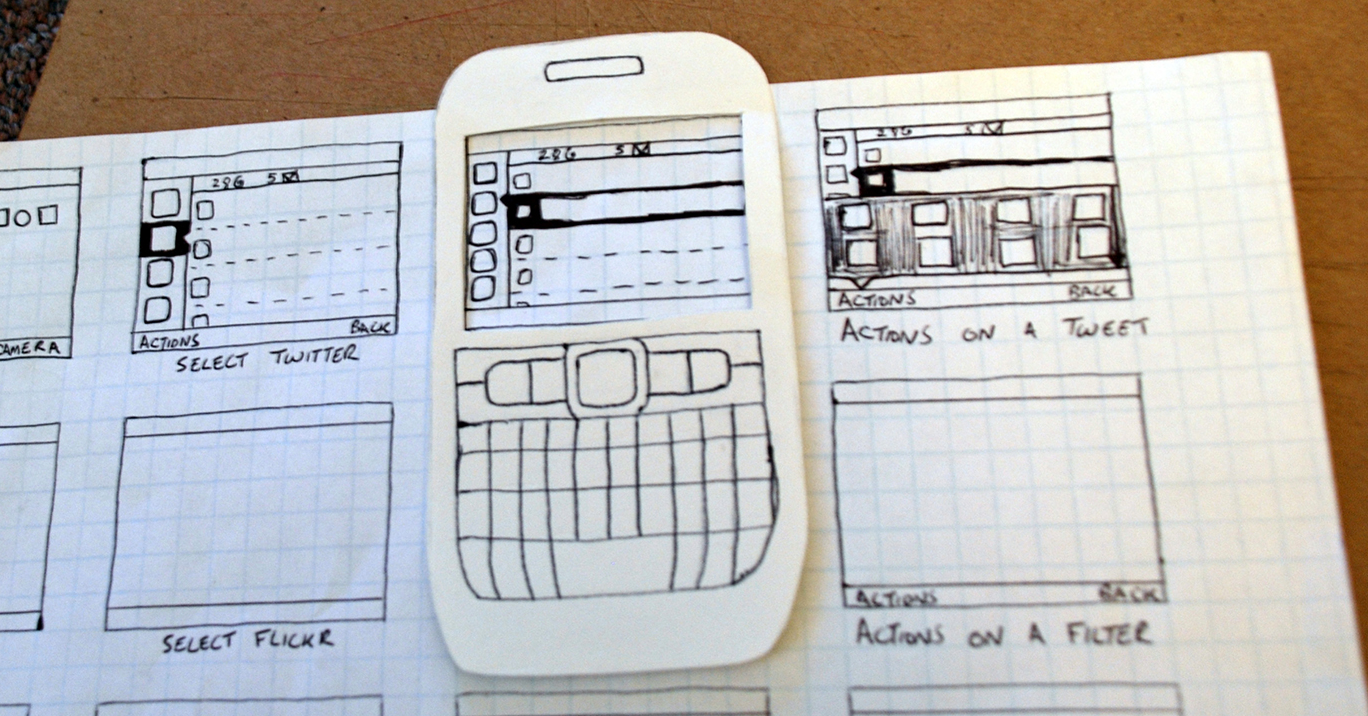 286 5
ACTIONS BACK
SELECT TWITTER
286 5
286 5
ACTIONS BACK
ACTIONS ON A TWEET
SELECT FLICKR
ACTIONS BACK
ACTIONS ON A FILTER